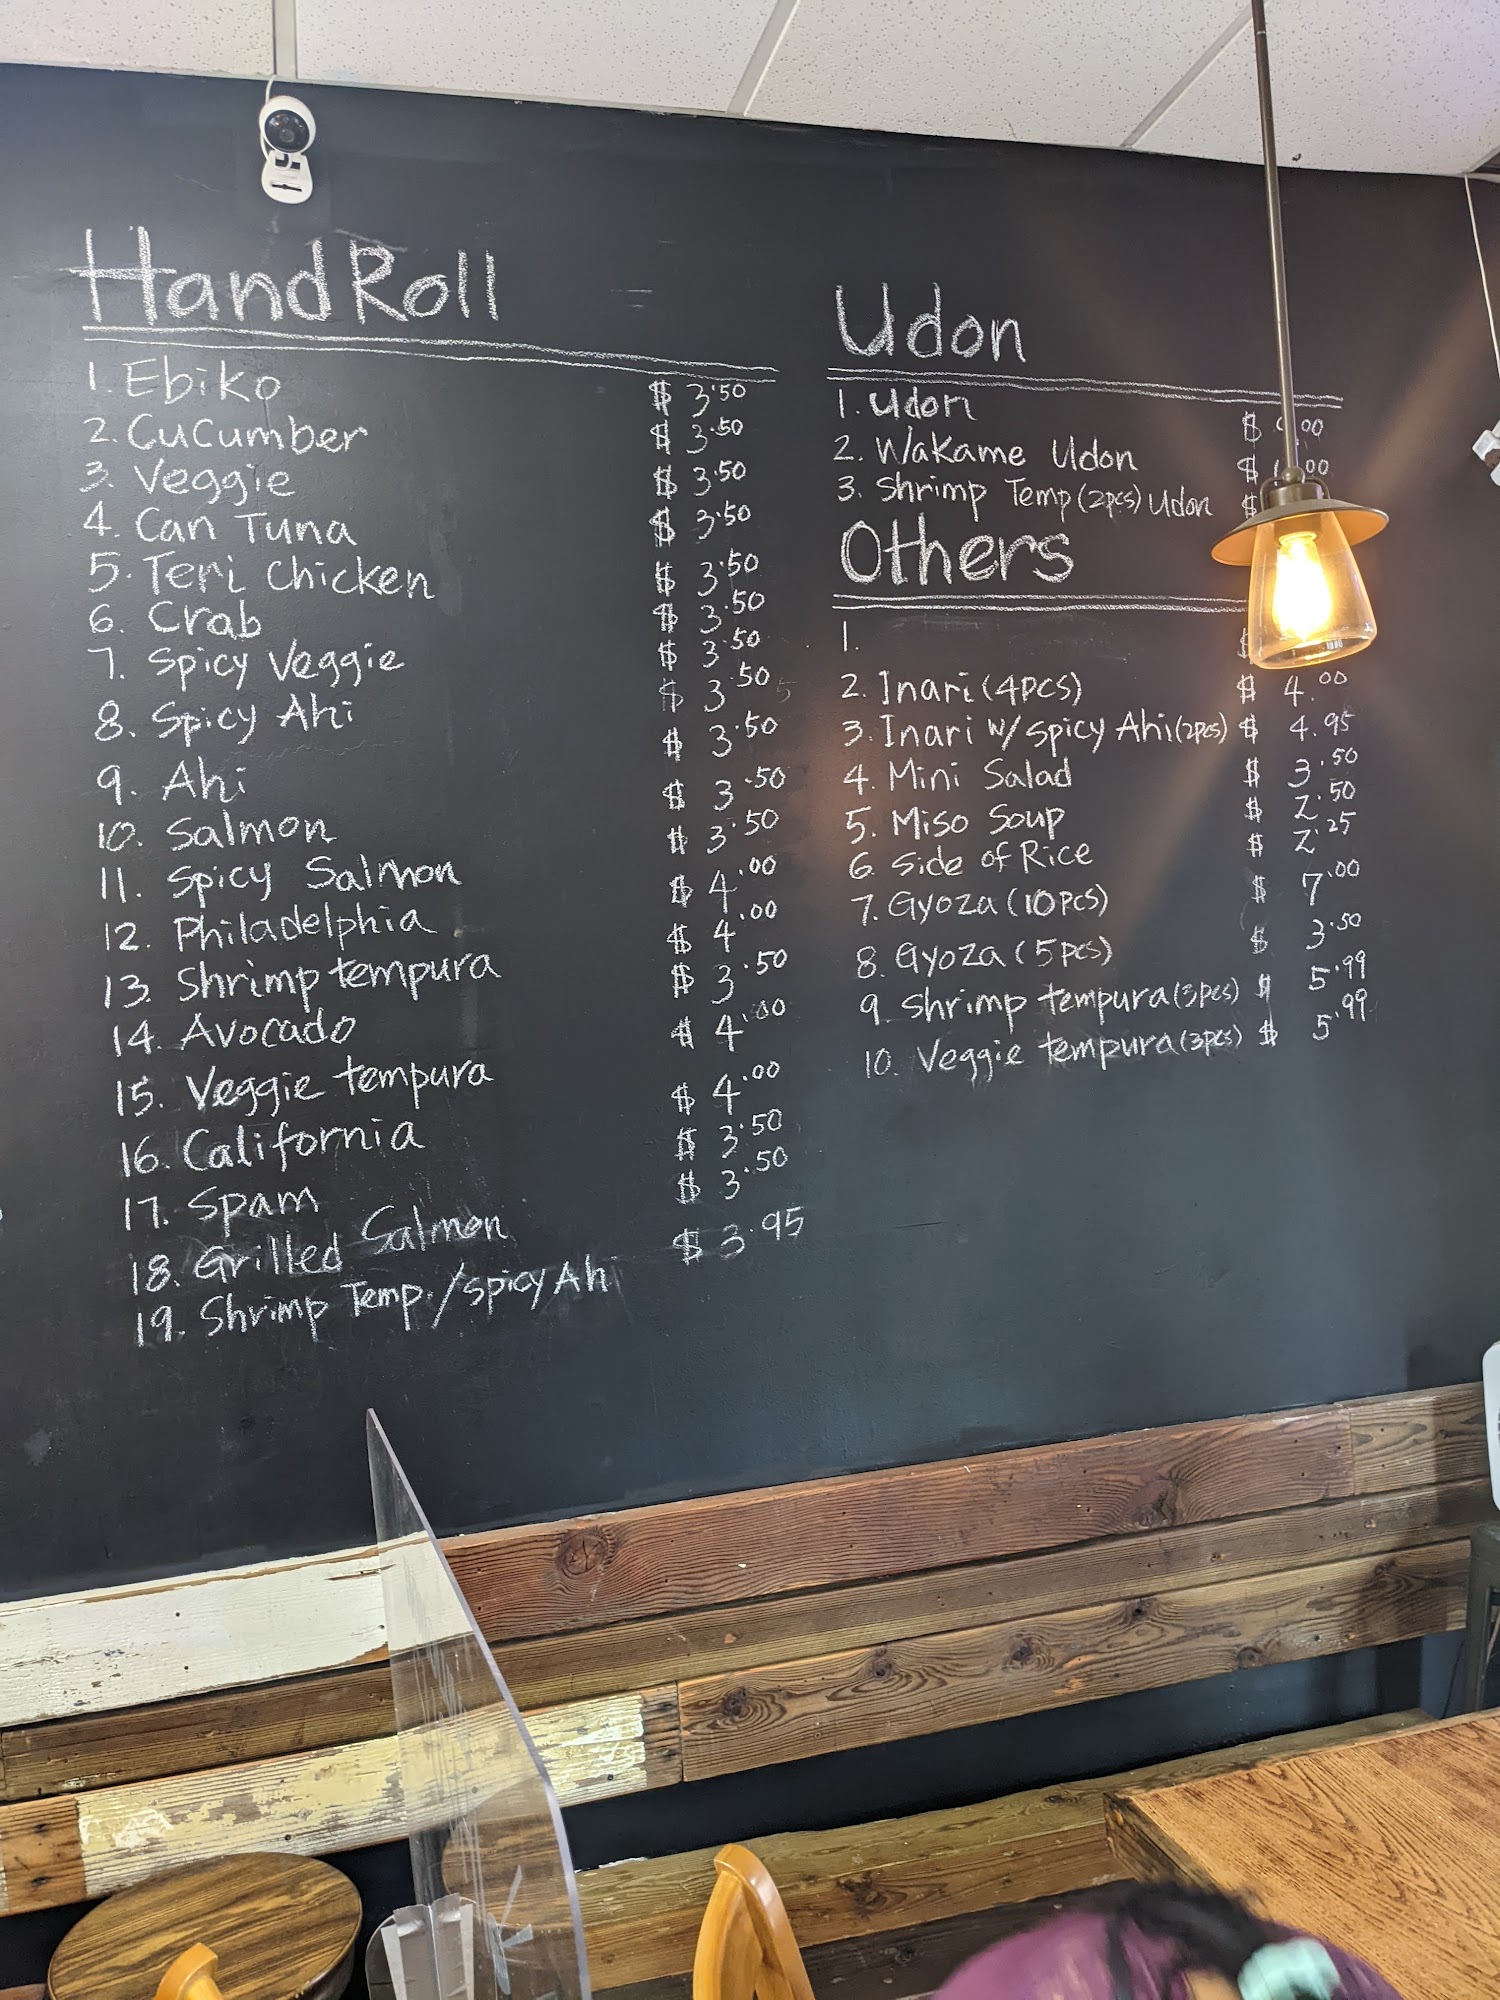 Hand Roll
1. Ebiko $ 3.50
2. Cucumber $ 3.50
3. Veggie $ 3.50
4. Can Tuna $ 3.50
5. Teri Chicken $ 3.50
6. Crab $ 3.50
7. Spicy Veggie $ 3.50
8. Spicy Ahi $ 3.50
9. Ahi $ 3.50
10. Salmon $ 3.50
11. Spicy Salmon $ 3.50
12. Philadelphia $ 4.00
13. Shrimp tempura $ 4.00
14. Avocado $ 3.50
15. Veggie tempura $ 4.00
16. California $ 4.00
17. Spam $ 3.50
18. Grilled Salmon $ 3.50
19. Shrimp Temp./spicy Ahi $ 3.95
Udon
1. Udon $
2. Wakame Udon $
3. Shrimp Temp (2pcs) Udon $
Others
1. $
2. Inari (4pcs) $ 4.00
3. Inari w/ spicy Ahi (2pcs) $ 4.95
4. Mini Salad $ 3.50
5. Miso Soup $ 2.50
6. Side of Rice $ 2.25
7. Gyoza (10pcs) $ 7.00
8. Gyoza (5pcs) $ 3.50
9. Shrimp tempura (3pcs) $ 5.99
10. Veggie tempura (3pcs) $ 5.99